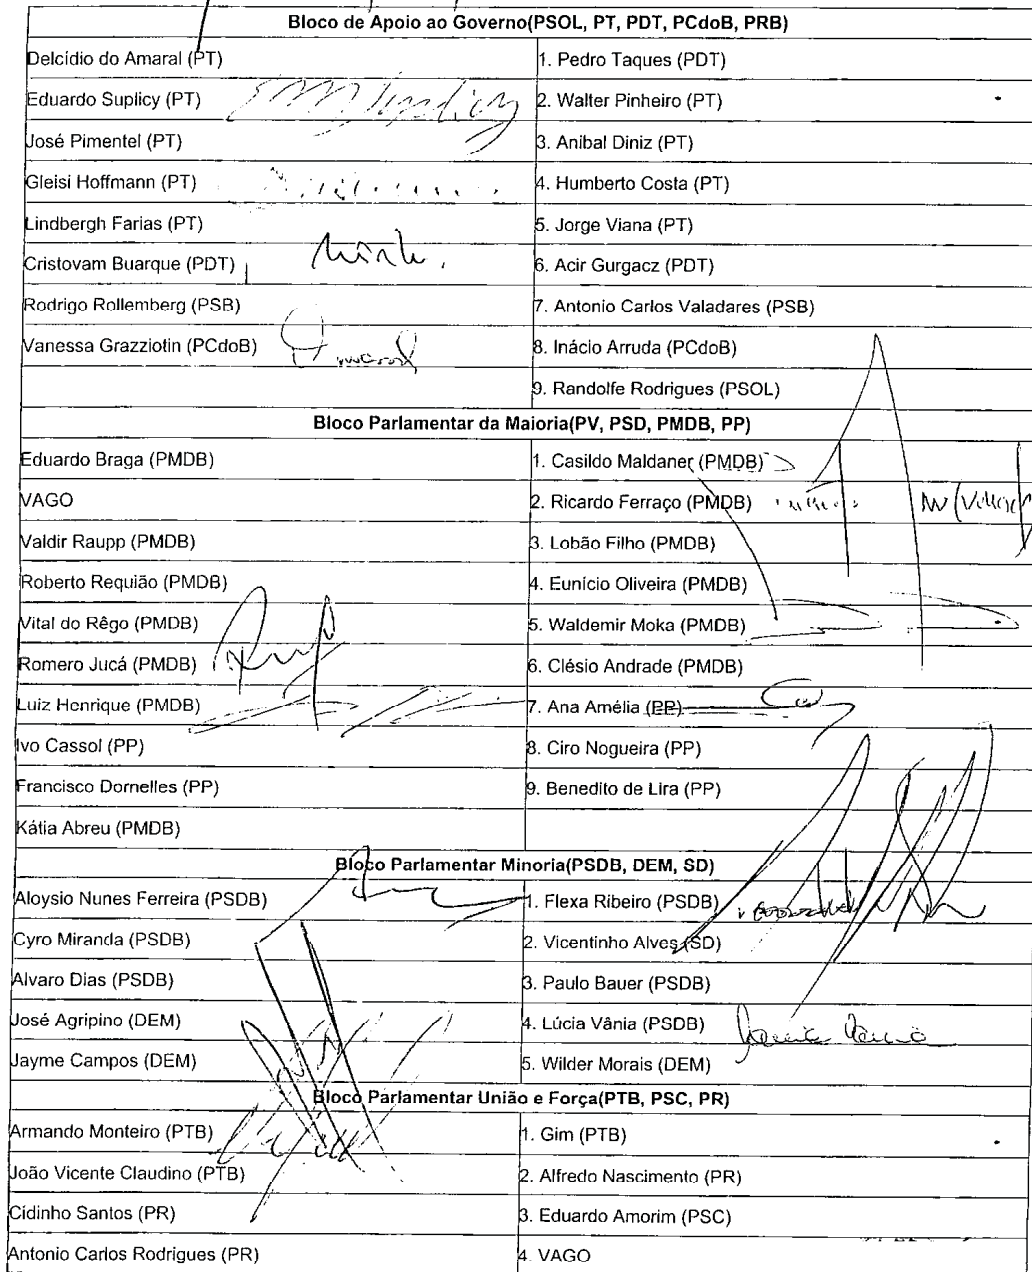 Bloco de Apoio ao Governo(PSOL, PT, PDT, PCdoB, PRB)
Delcídio do Amaral (PT) 1. Pedro Taques (PDT)
Eduardo Suplicy (PT) 2. Walter Pinheiro (PT)
José Pimentel (PT) 3. Anibal Diniz (PT)
Gleisi Hoffmann (PT) 4. Humberto Costa (PT)
Lindbergh Farias (PT) 5. Jorge Viana (PT)
Cristovam Buarque (PDT) 6. Acir Gurgacz (PDT)
Rodrigo Rollemberg (PSB) 7. Antonio Carlos Valadares (PSB)
Vanessa Grazziotin (PCdoB) 8. Inácio Arruda (PCdoB)
9. Randolfe Rodrigues (PSOL)
Bloco Parlamentar da Maioria(PV, PSD, PMDB, PP)
Eduardo Braga (PMDB) 1. Casildo Maldaner (PMDB)
VAGO 2. Ricardo Ferraço (PMDB)
Valdir Raupp (PMDB) 3. Lobão Filho (PMDB)
Roberto Requião (PMDB) 4. Eunício Oliveira (PMDB)
Vital do Rêgo (PMDB) 5. Waldemir Moka (PMDB)
Romero Jucá (PMDB) 6. Clésio Andrade (PMDB)
Luiz Henrique (PMDB) 7. Ana Amélia (PP)
Ivo Cassol (PP) 8. Ciro Nogueira (PP)
Francisco Dornelles (PP) 9. Benedito de Lira (PP)
Kátia Abreu (PMDB)
Bloco Parlamentar Minoria(PSDB, DEM, SD)
Aloysio Nunes Ferreira (PSDB) 1. Flexa Ribeiro (PSDB)
Cyro Miranda (PSDB) 2. Vicentinho Alves (SD)
Alvaro Dias (PSDB) 3. Paulo Bauer (PSDB)
José Agripino (DEM) 4. Lúcia Vânia (PSDB)
Jayme Campos (DEM) 5. Wilder Morais (DEM)
Bloco Parlamentar União e Força(PTB, PSC, PR)
Armando Monteiro (PTB) 1. Gim (PTB)
João Vicente Claudino (PTB) 2. Alfredo Nascimento (PR)
Cidinho Santos (PR) 3. Eduardo Amorim (PSC)
Antonio Carlos Rodrigues (PR) 4. VAGO